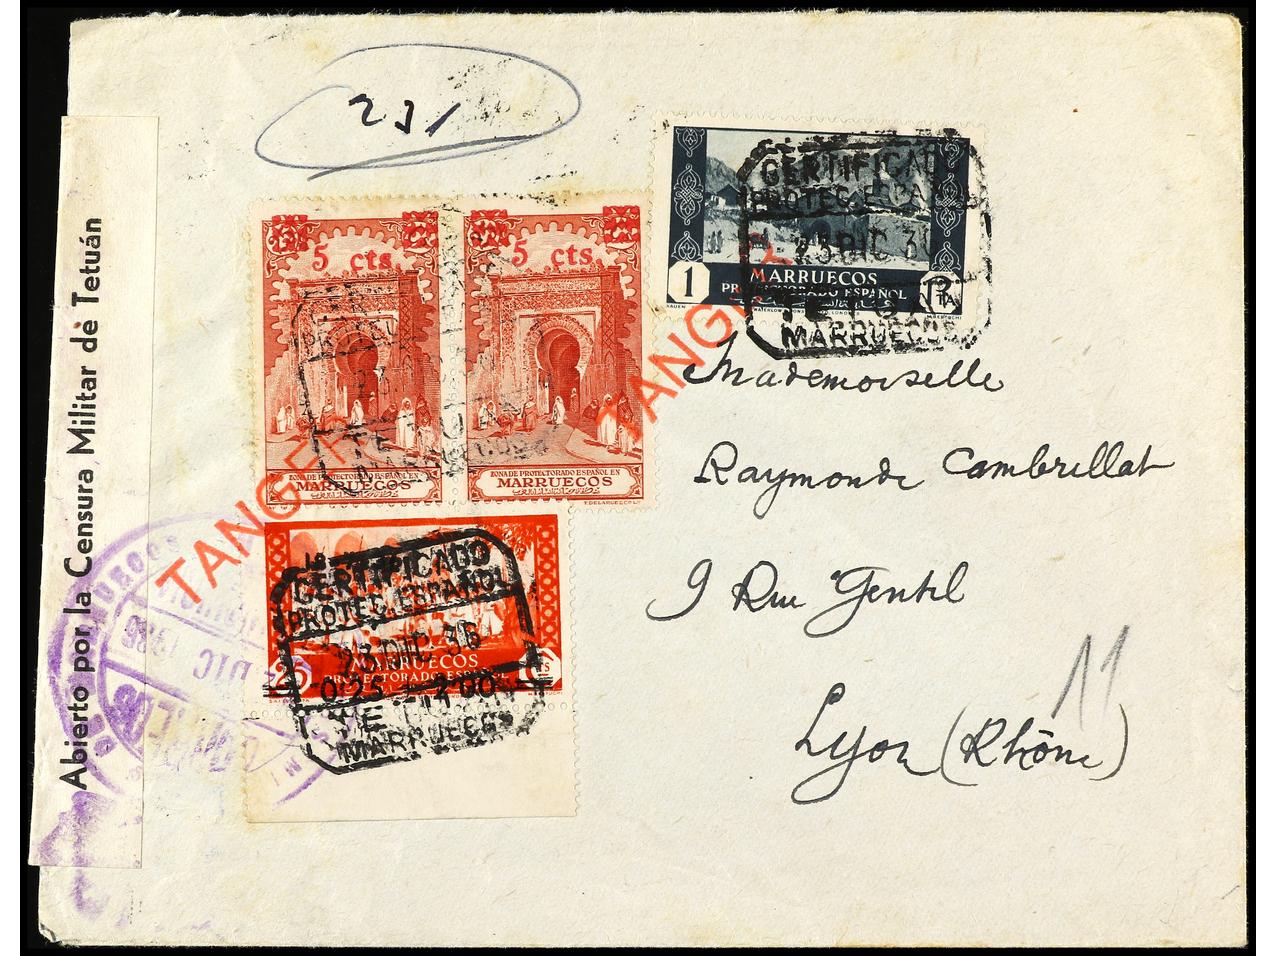 231
5 cts
5 cts
ZONA DE PROTECTORADO ESPAÑOL EN
MARRUECOS
ZONA DE PROTECTORADO ESPAÑOL EN
MARRUECOS
1
MARRUECOS
PROTECTORADO ESPAÑOL
CERTIFICADO
PROTEC. ESPAÑOL
23 DIC 36
TETUAN
MARRUECOS
TANGER
TANGER
Mademoiselle
Raymonde Cambrillat
9 Rue Gentil
Lyon (Rhône)
11
CERTIFICADO
PROTEC. ESPAÑOL
23 DIC 36
TETUAN
MARRUECOS
25
MARRUECOS
PROTECTORADO ESPAÑOL
0'25 + 2'00
Abierto por la Censura Militar de Tetuán
DIC 1936